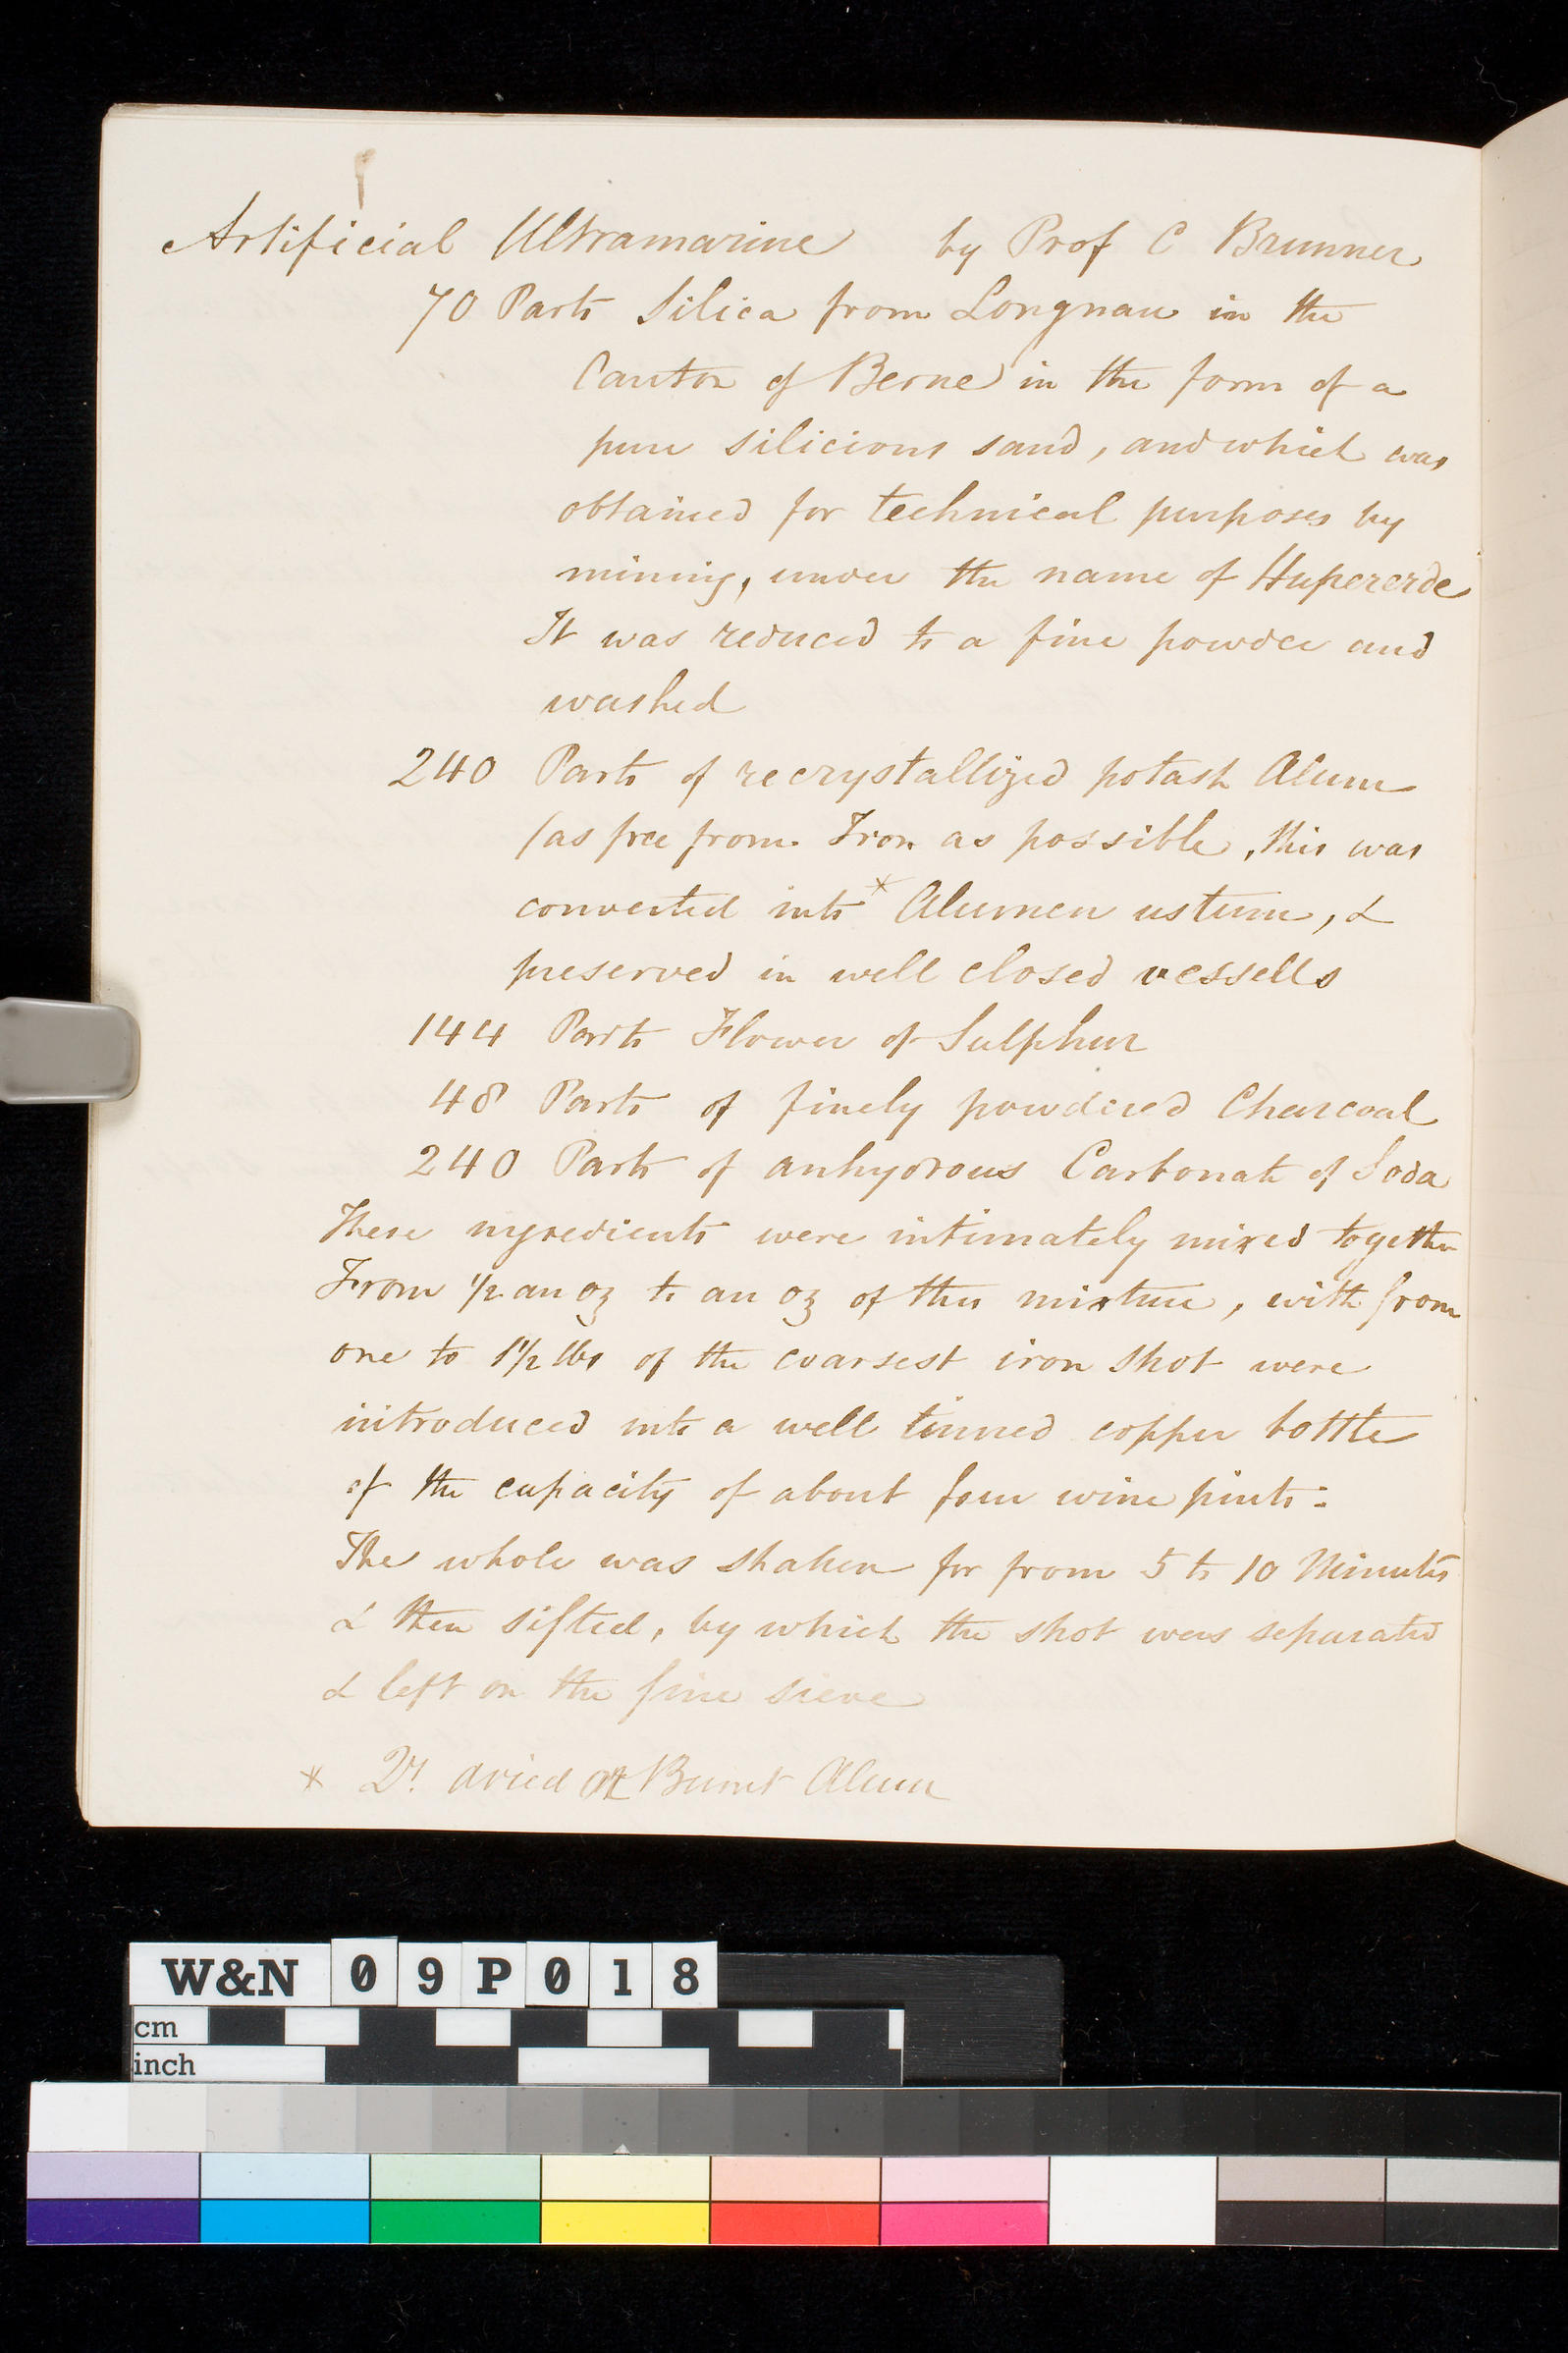 Artificial Ultramarine by Prof C Brunner
70 Parts Silica from Longnau in the
Canton of Berne in the form of a
pure silicious sand, and which was
obtained for technical purposes by
mining, under the name of Hupererde
It was reduced to a fine powder and
washed
240 Parts of recrystallized potash Alum
(as free from Iron as possible, this was
converted into * Alumen ustum, &
preserved in well closed vessells
144 Parts Flower of Sulphur
48 Parts of finely powdered Charcoal
240 Parts of anhydrous Carbonate of Soda
These ingredients were intimately mixed together
From 1/2 an oz to an oz of this mixture, with from
one to 1 1/2 lbs of the coarsest iron shot were
introduced into a well tinned copper bottle
of the capacity of about four wine pints.
The whole was shaken for from 5 to 10 Minutes
& then sifted, by which the shot was separated
& left on the fine sieve
* dried or Burnt Alum
W&N 09P018
cm
inch